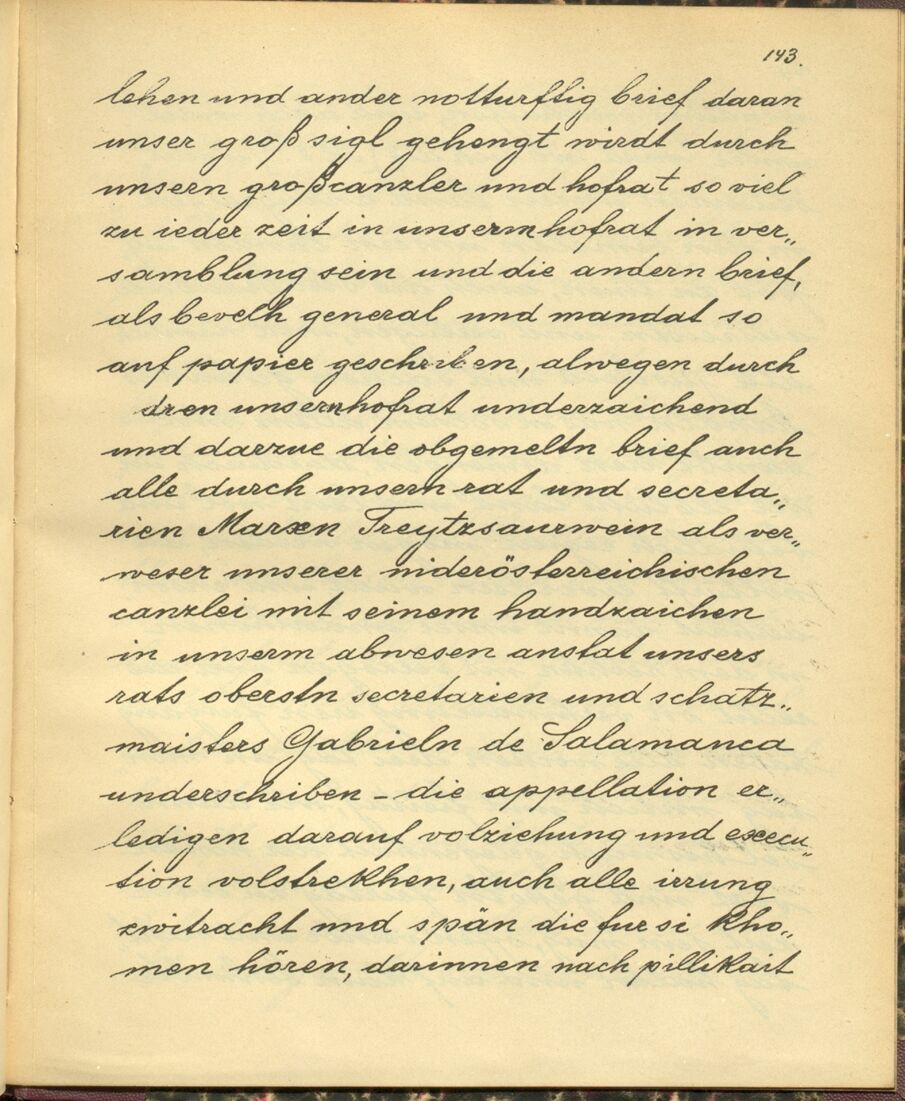 143.
lehen und ander notturftig brief daran
unser groß sigl gehengt wirdt durch
unsern großcanzler und hofrat so viel
zu ieder zeit in unserm hofrat in ver„
samblung sein und die andern brief,
als bevelh general und mandat so
auf papier geschriben, alwegen durch
dren unsern hofrat underzaichend
und darzue die obgemeltn brief auch
alle durch unsern rat und secreta„
rien Marxen Treytzsaurwein als ver„
weser unserer niderösterreichischen
canzlei mit seinem handzaichen
in unserm abwesen anstat unsers
rats oberstn secretarien und schatz„
maisters Gabrieln de Salamanca
underschriben – die appellation er„
ledigen darauf volziehung und execu„
tion volstrekhen, auch alle irrung
zwitracht und spän die fur si kho„
men hören, darinnen nach pillikait